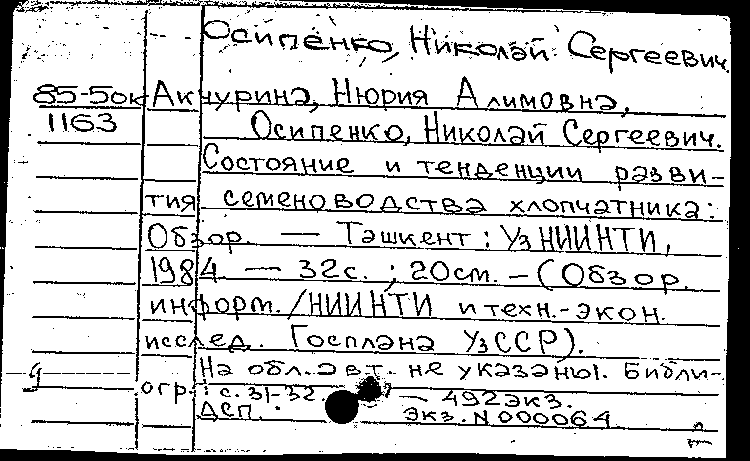 Осипенко, Николай Сергеевич.
85-5ок Акчурина, Нюрия Алимовна,
1163 Осипенко, Николай Сергеевич.
Состояние и тенденции разви-
тия семеноводства хлопчатника:
Обзор. — Ташкент: УзНИИНТИ,
1984. — 32с.; 20см. — (Обзор.
информ. /НИИНТИ и техн.-экон.
исслед. Госплана УзССР).
На обл. авт. не указаны. Библи-
огр.: с. 31-32. — 492экз.
ДСП. Экз. N 000064